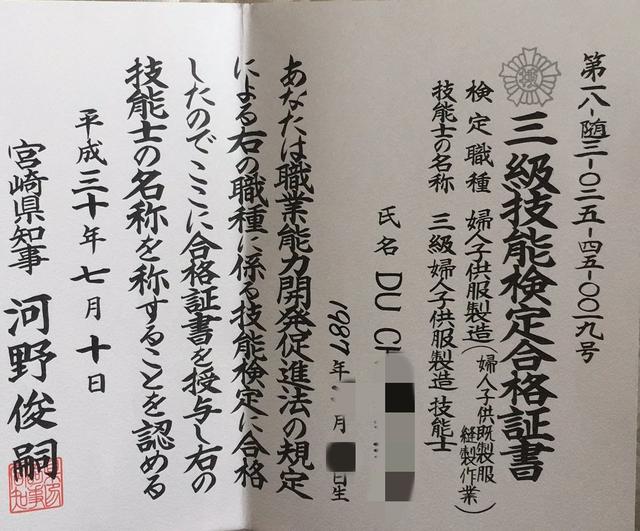 第一八-随三-〇二五-四五-〇〇一九号
三級技能検定合格証書
検定職種 婦人子供服製造(婦人子供既製服縫製作業)
技能士の名称 三級婦人子供服製造技能士
氏名 DU
1987年 月 日生
あなたは職業能力開発促進法の規定
による右の職種に係る技能検定に合格
したのでここに合格証書を授与し右の
技能士の名称を称することを認める
平成三十年七月十日
宮崎県知事 河野俊嗣